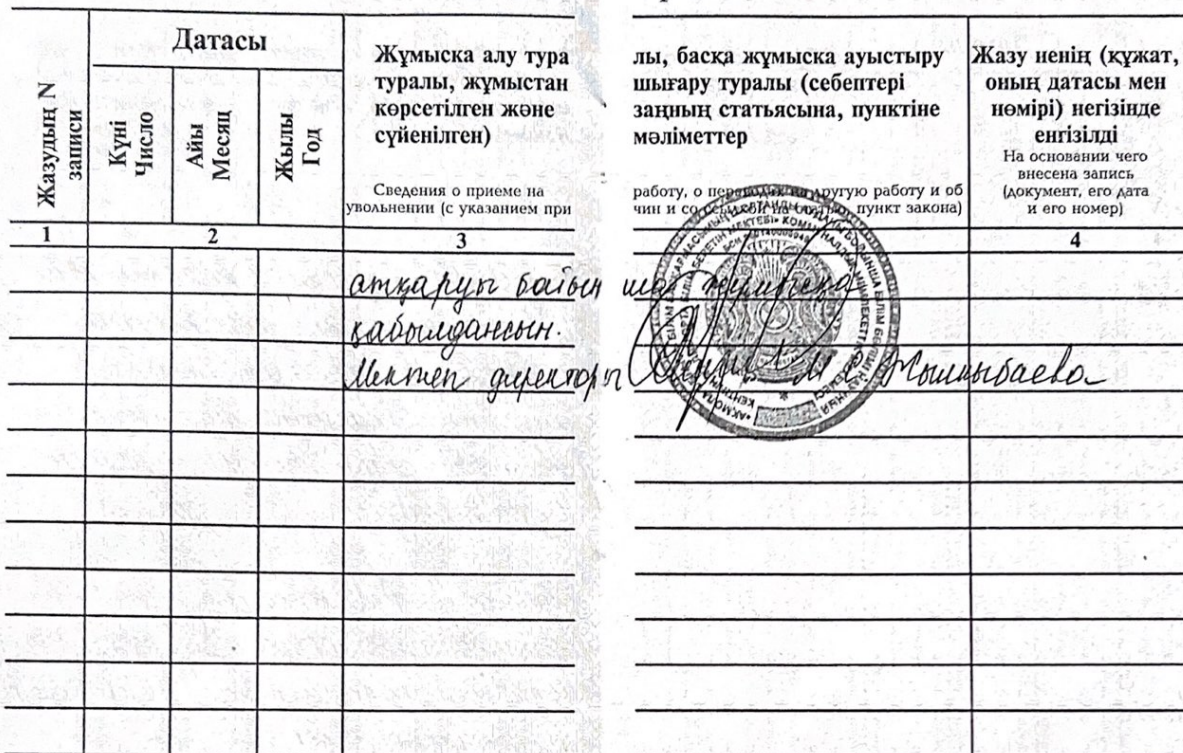 Жазудың N
записи
Датасы
Күні
Число
Айы
Месяц
Жылы
Год
Жұмысқа алу тура
туралы, жұмыстан
көрсетілген және
сүйенілген)
Сведения о приеме на
увольнении (с указанием при
лы, басқа жұмысқа ауыстыру
шығару туралы (себептері
заңның статьясына, пунктіне
мәліметтер
работу, о переводах на другую работу и об
чин и со пункт закона)
Жазу ненің (құжат,
оның датасы мен
нөмірі) негізінде
енгізілді
На основании чего
внесена запись
(документ, его дата
и его номер)
1 2 3 4
атқаруы бойын ша жұмысқа
қабылдансын.
Мектеп директоры М